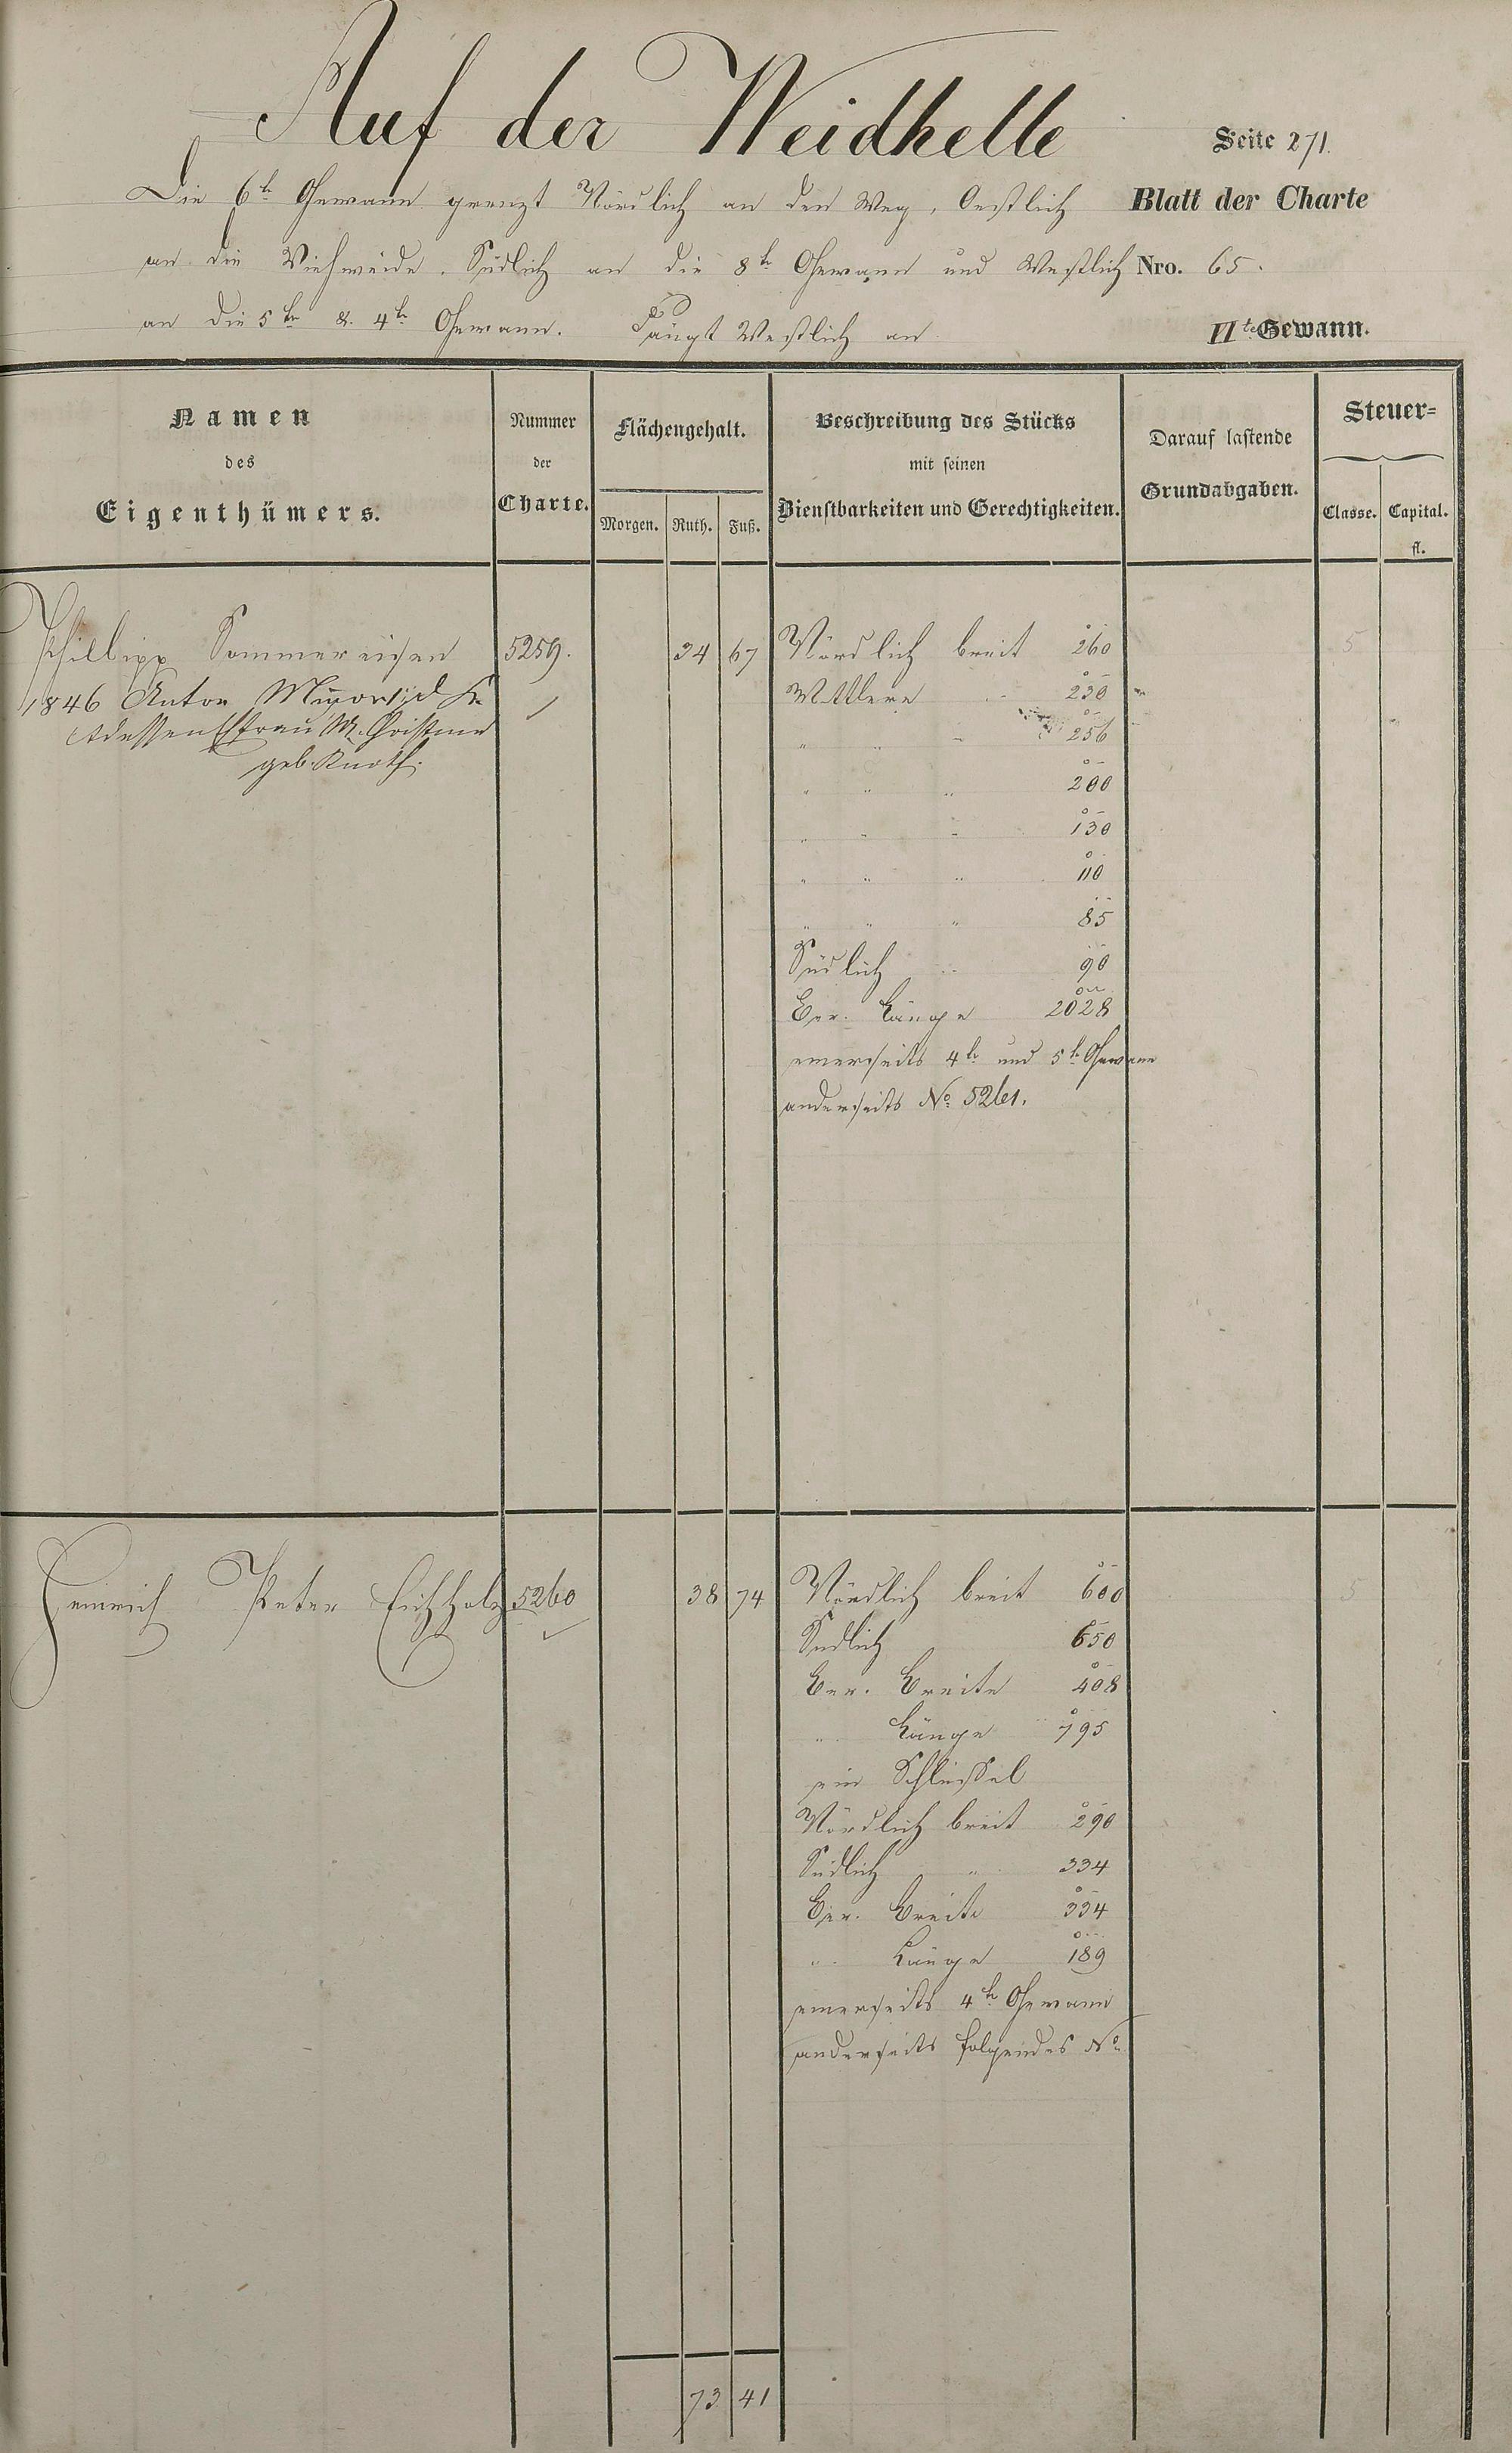 Auf der Weidhelle
Seite 271.
Die 6te Gewann grenzt Nördlich an den Weg, Oestlich
Blatt der Charte
an die Viehweide, Südlich an die 8te Gewann und Westlich
Nro. 65.
an die 5te & 4te Gewann. Fängt Westlich an
VIte Gewann.
Namen
des
Eigenthümers.
Nummer
der
Charte.
Flächengehalt.
Morgen. Ruth. Fuß.
Beschreibung des Stücks
mit seinen
Dienstbarkeiten und Gerechtigkeiten.
Darauf lastende
Grundabgaben.
Steuer=
Classe. Capital.
fl.
Phillipp Sommereisen 5259. 34 67 Nördlich breit 260 5
1846 Anton
Mittlere 230
dessen Efrau M. Christine
" " 256
geb. Knoth.
" " " 200
" " " 130
" " " 110
" " " 85
Südlich " 90
Ber. Länge 2028
einerseits 4te und 5te Gewann
anderseits No 5261.
Heinrich Peter Eichholz 5260 38 74 Nördlich breit 600 5
Südlich 650
Ber. Breite 408
" Länge 795
ein Schlüssel
Nördlich breit 290
Südlich " 334
Ber. Breite 334
" Länge 189
einerseits 4te Gewann
anderseits folgendes No
73 41